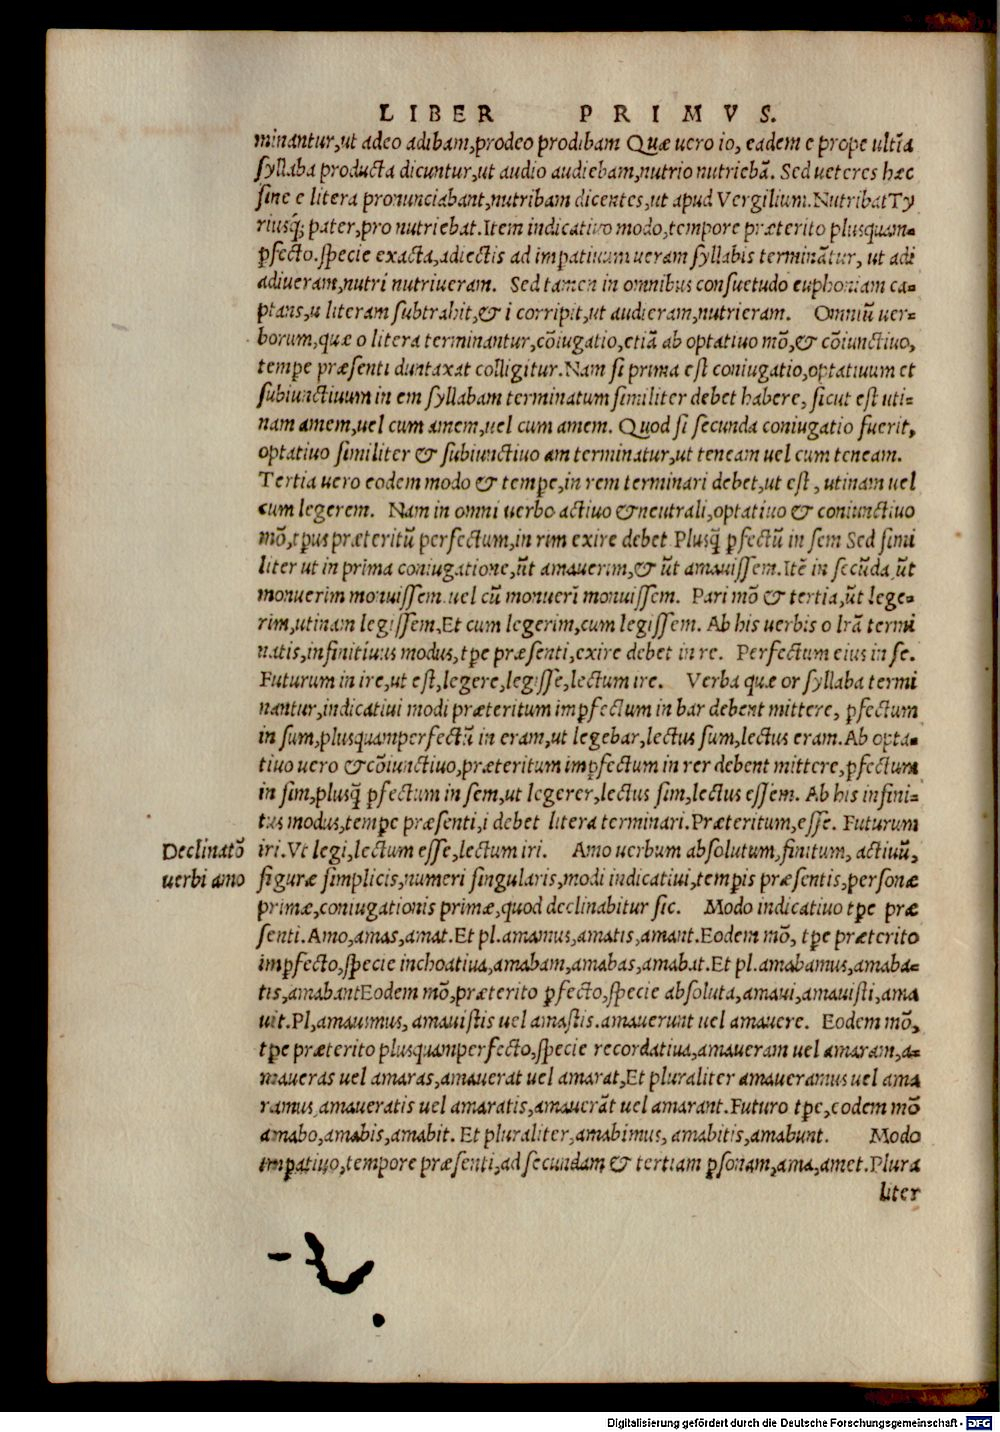 LIBER PRIMVS.
minantur,ut adeo adibam,prodeo prodibam Quæ uero io, eadem e prope ultĩa
syllaba producta dicuntur,ut audio audiebam,nutrio nutriebã. Sed ueteres hæc
sine e litera pronunciabant,nutribam dicentes,ut apud Vergilium.Nutribat Ty
riusq́; pater,pro nutriebat.Item indicatiuo modo,tempore præterito plusquam=
ꝑfecto.specie exacta,adiectis ad impatiuum ueram syllabis terminãtur, ut adi
adiueram,nutri nutriueram. Sed tamen in omnibus consuetudo euphoniam ca=
ptans,u literam subtrahit,& i corripit,ut audieram,nutrieram. Omniũ uer=
borum,quæ o litera terminantur,cõiugatio,etiã ab optatiuo mõ,& cõiunctiuo,
tempe præsenti duntaxat colligitur.Nam si prima est coniugatio,optatiuum et
subiunctiuum in em syllabam terminatum similiter debet habere, sicut est uti=
nam amem,uel cum amem,uel cum amem. Quod si secunda coniugatio fuerit,
optatiuo similiter & subiunctiuo am terminatur,ut teneam uel cum teneam.
Tertia uero eodem modo & tempe,in rem terminari debet,ut est, utinam uel
cum legerem. Nam in omni uerbo actiuo & neutrali,optatiuo & coniunctiuo
mõ,tpus præteritũ perfectum,in rim exire debet Plusq̃ ꝑfectũ in sem Sed simi
liter ut in prima coniugatione,ũt amauerim,& ũt amauissem.Itẽ in secũda,ũt
monuerim monuissem.uel cũ monuerĩ monuissem. Pari mõ & tertia,ũt lege=
rim,utinam legissem.Et cum legerim,cum legissem. Ab his uerbis o lrã termi
natis,infinitiuus modus,tpe præsenti,exire debet in re. Perfectum eius in se.
Futurum in ire,ut est,legere,legisse,lectum ire. Verba quæ or syllaba termi
nantur,indicatiui modi præteritum imꝑfectum in bar debent mittere, ꝑfectum
in sum,plusquamperfectũ in eram,ut legebar,lectus sum,lectus eram.Ab opta=
tiuo uero & cõiunctiuo,præteritum imꝑfectum in rer debent mittere,ꝑfectum
in sim,plusq̃ ꝑfectum in sem,ut legerer,lectus sim,lectus essem. Ab his infini=
tus modus,tempe præsenti,i debet litera terminari.Præteritum,esse. Futurum
Declinatõ iri.Vt legi,lectum esse,lectum iri. Amo uerbum absolutum,finitum, actiuũ,
uerbi amo figuræ simplicis,numeri singularis,modi indicatiui,tempis præsentis,personæ
primæ,coniugationis primæ,quod declinabitur sic. Modo indicatiuo tpe præ
senti.Amo,amas,amat.Et pl.amamus,amatis,amant.Eodem mõ, tpe præterito
imꝑfecto,specie inchoatiua,amabam,amabas,amabat.Et pl.amabamus,amaba=
tis,amabantEodem mõ,præterito ꝑfecto,specie absoluta,amaui,amauisti,ama
uit.Pl,amauimus, amauistis uel amastis.amauerunt uel amauere. Eodem mõ,
tpe præterito plusquamperfecto,specie recordatiua,amaueram uel amaram,a=
maueras uel amaras,amauerat uel amarat,Et pluraliter amaueramus uel ama
ramus,amaueratis uel amaratis,amauerãt uel amarant.Futuro tpe,eodem mõ
amabo,amabis,amabit. Et pluraliter,amabimus, amabitis,amabunt. Modo
impatiuo,tempore præsenti,ad secundam & tertiam ꝑsonam,ama,amet.Plura
liter
Digitalisierung gefördert durch die Deutsche Forschungsgemeinschaft - DFG